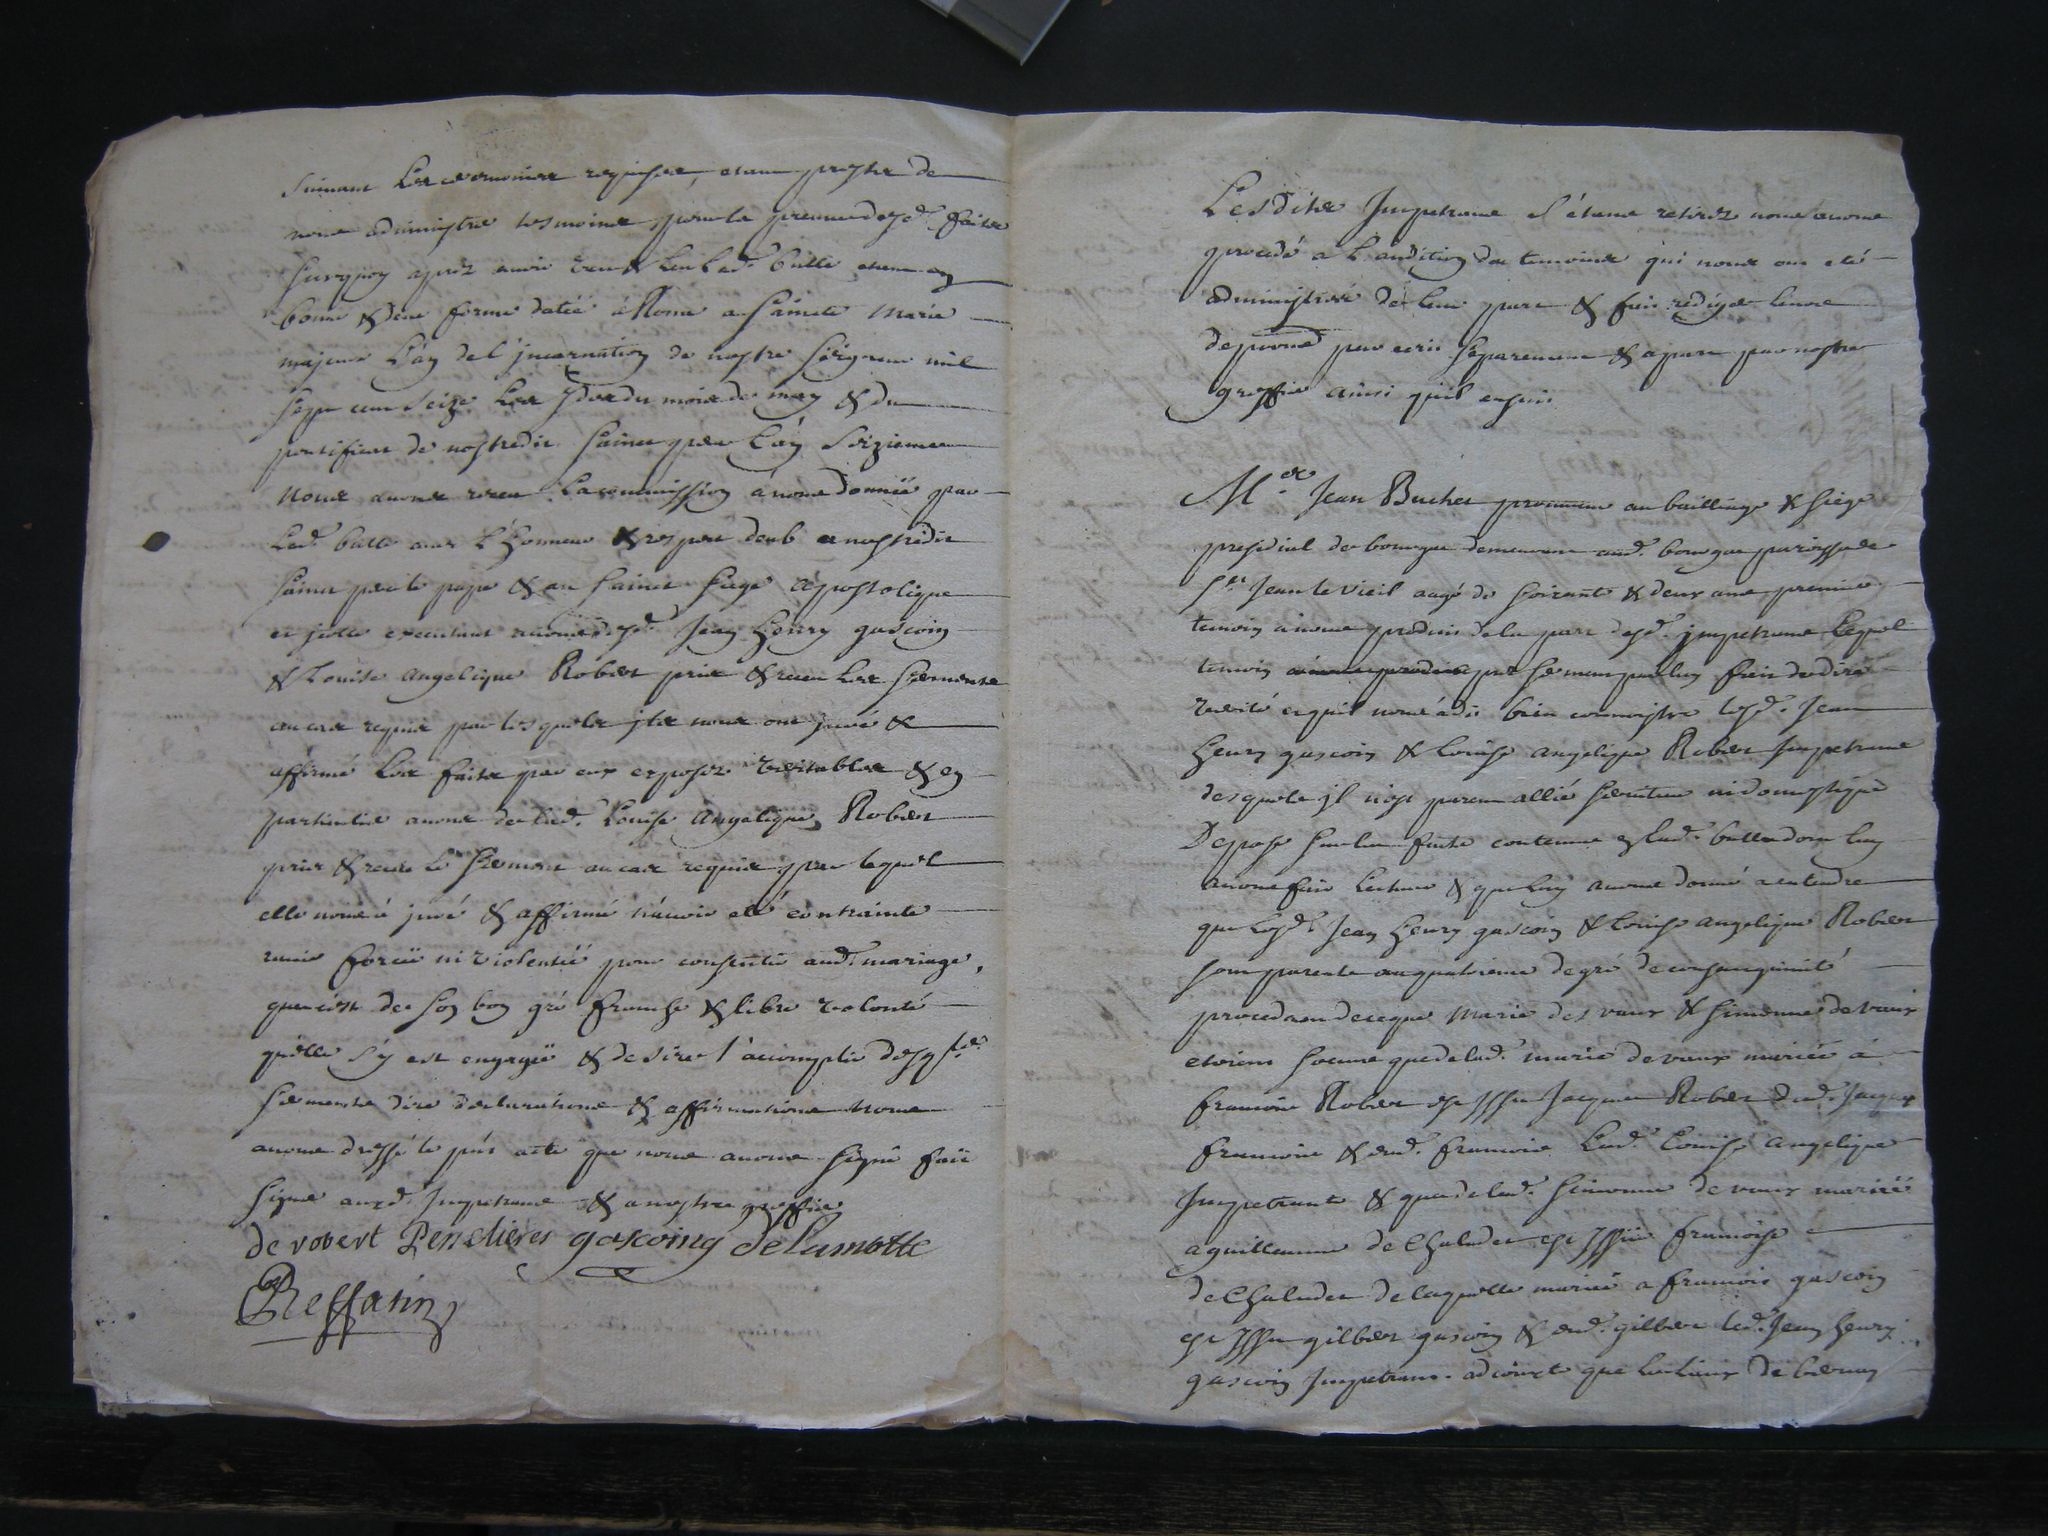 suivant les ceremonies requises, estans prests de
nous administrer tesmoins pour la preuve desd. faits
surquoy aprez avoir veu & leu lad. bulle estans en
bonne & deue forme datée à Rome a Saincte Marie
majeure l'an de l'jncarnation de nostre Seigneur mil
sept cens seize les jdes du mois de may & du
pontificat de nostredit Sainct pere l'an seizieme
nous avons receu la commission à nous donnée par
lad. bulle avec l'honneur & respect deub a nostredit
Sainct pere le pape & au Sainct Siege Apostolique
et jcelle executant avons desd. Jean Henry gascoin
& Louise angelique Robert pris & receu les serments
au cas requis par lesquels jls nous ont juré &
affirmé les faits par eux exposez veritables & en
particulier avons de lad. Louise angelique Robert
pris & receu le serment au cas requis par lequel
elle nous a juré & affirmé n'avoir eté contrainte
ravie forcée ni violentée pour consentir aud. mariage,
que c'est de son bon gré franche & libre volonté
qu'elle s'y est engagée & desire l'accomplir desqls.
serments dire declarations & affirmations nous
avons dressé le pnt acte que nous avons signé fait
signer ausd. Impetrans & a nostre greffier
de robert Pesselieres gascoing de Lamotte
Reffatin
Lesdits Impetrans s'étans retirez nous avons
procedé a l'audition des temoins qui nous ont eté
administrés de leur part & fait rediger leurs
depons par ecrit separement & a part par nostre
greffier ainsi quil ensuit
Me Jean Buchet procureur au bailliage & siege
presidial de bourges demeurant aud. bourges parroisse de
St Jean le vieil aagé de soixante & deux ans premier
temoin a nous produit de la part desd. jmpetrans lequel
temoin a nous produit pris serment par luy fait de dire
verité et quil nous a dit bien connoistre lesd. Jean
henry gascoin & Louise angelique Robert Impetrans
desquels jl n'est parent allié serviteur ni domestique
Depose sur les faits contenus en lad. bulle dont luy
avons fait lecture & que luy avons donné a entendre
que lesd. Jean Henry gascoin & Louise angelique Robert
sont parents au quatrieme degré de consanguinité
procedant de ce que Marie des vaux & simonne de vaux
etoient soeurs que de lad. marie de vaux mariée à
francois Robert est Issu Jacques Robert dud. Jacques
francois & dud. francois Lad. Louise angelique
Impetrante & que de lad. simonne de vaux mariée
a guillaume de Chaludet est Issüe francoise
de Chaludet de laquelle mariée a francois gascoin
est Issu gilbert gascoin & dud. gilbert led. Jean henry
gascoin Impetrant. adjouste que les lieux de